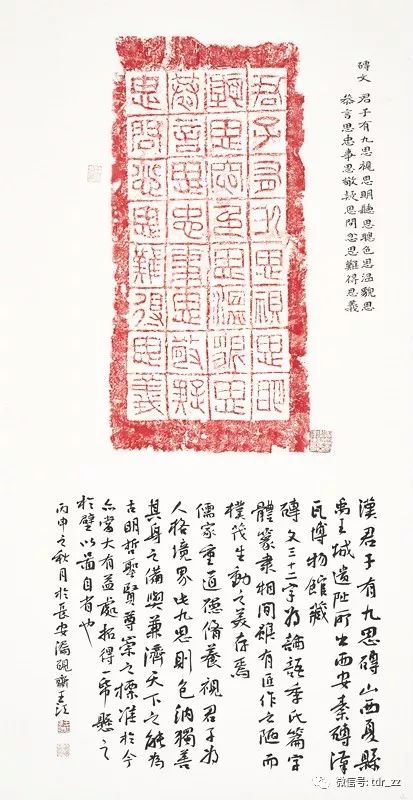 磚文 君子有九思視思明聽思聰色思溫貌思
恭言思忠事思敬疑思問忿思難得思義
君子有九思視思明
聽思聰色思溫貌思
恭言思忠事思敬疑
思問忿思難得思義
漢君子有九思磚山西夏縣
禹王城遺址所出西安秦磚漢
瓦博物館藏
磚文三十二字為論語季氏篇字
體篆隸相間頗有匠作之陋而
樸茂生動之美存焉
儒家重道德脩養視君子為
人格境界此九思則包納獨善
其身之備與兼濟天下之能為
古明哲聖賢尊崇之標準於今
亦當大有益處拓得一帋懸之
於壁以啚自省也
丙申之秋月於長安 硯齋王
微信号: tdr_zz